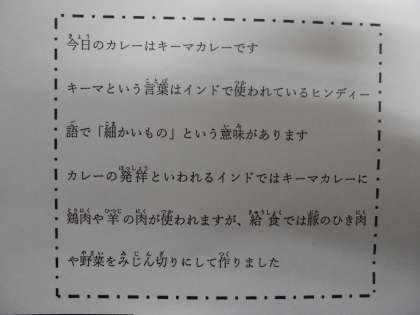 今日のカレーはキーマカレーです
キーマという言葉はインドで使われているヒンディー
語で「細かいもの」という意味があります
カレーの発祥といわれるインドではキーマカレーに
鶏肉や羊の肉が使われますが、給食では豚のひき肉
や野菜をみじん切りにして作りました